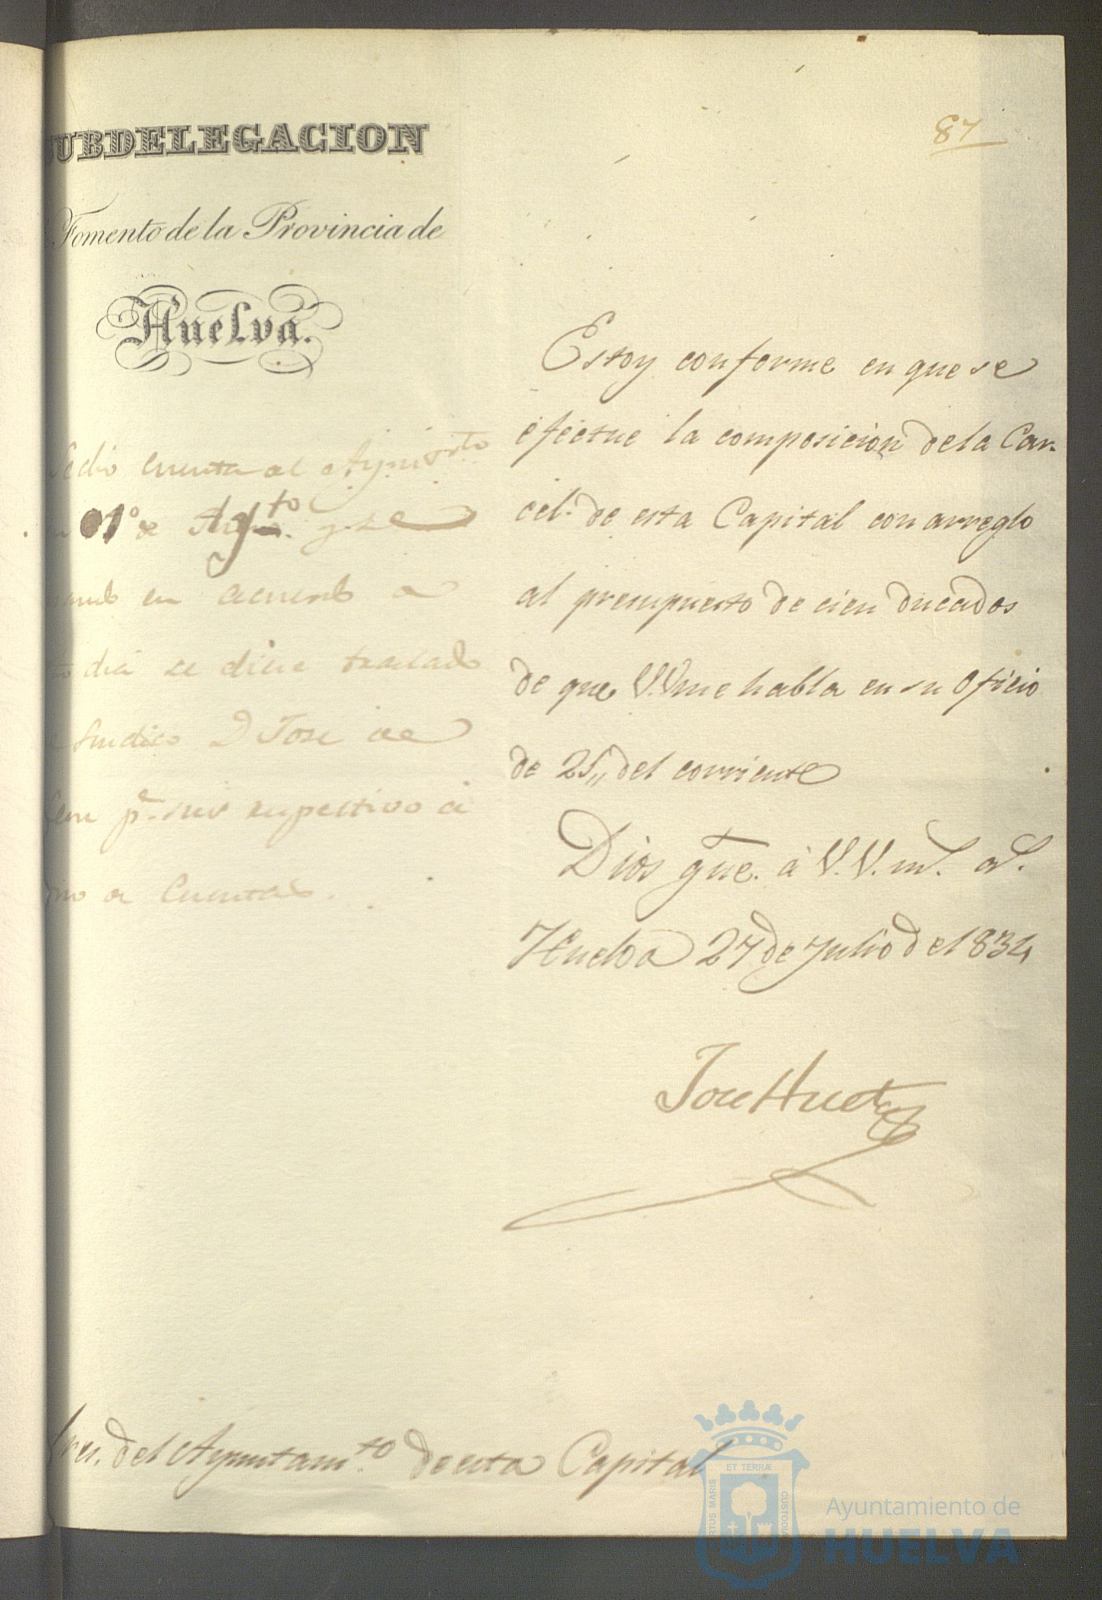 UBDELEGACION
Fomento de la Provincia de
Huelva.
87
Estoy conforme en que se
efectue la composicion de la Car-
cel. de esta Capital con arreglo
al presupuesto de cien ducados
de que V.Vme habla en su Oficio
de 25,, del corriente
Dios gue. á V.V. ms. as.
Huelva 27 de Julio de 1834
Jose Huet
Se dio cuenta al Ayunto
01º de Agto. y se
en acuerdo a
dia se diese traslado
Sindico D Jose de
pa. sus respectivo
de Cuentas.
res. del Ayuntam.to de esta Capital
ET TERRÆ
PORTUS MARIS
CUSTODIA
Ayuntamiento de
HUELVA